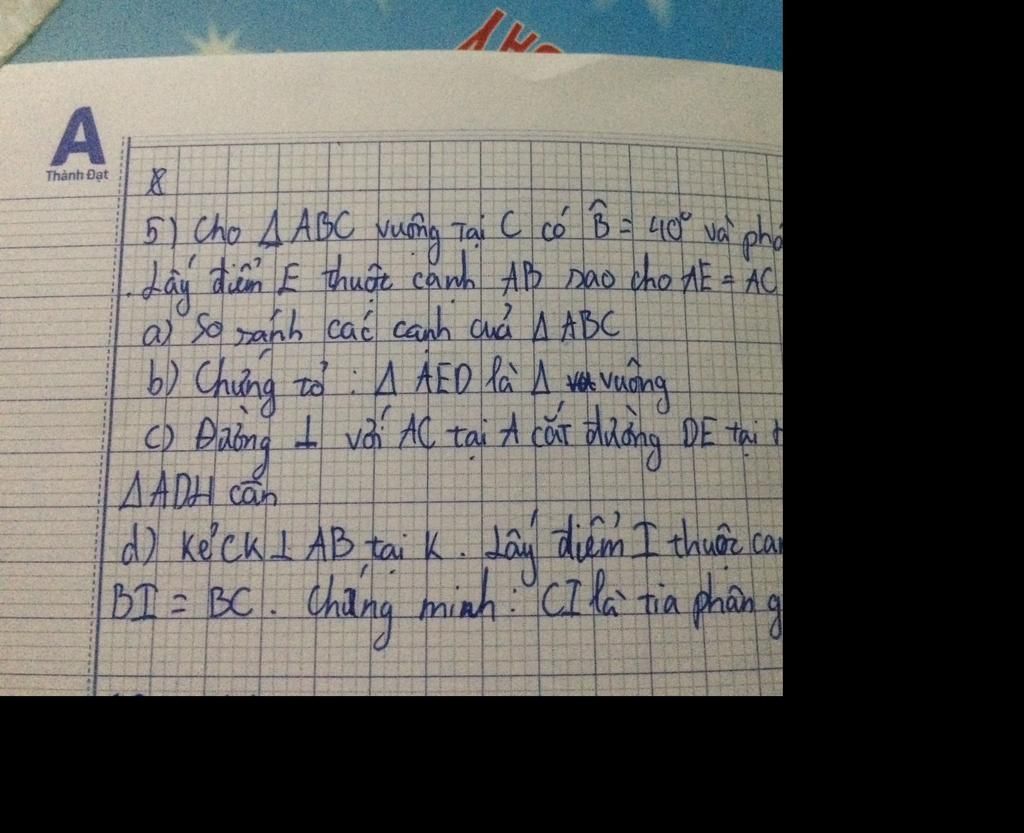 A
Thành Đạt
5) Cho Δ ABC vuông tại C có B̂ = 40° và
. Lấy điểm E thuộc cạnh AB sao cho AE = AC
a) So sánh các cạnh của Δ ABC
b) Chứng tỏ : Δ AED là Δ vuông
c) Đường ⊥ với AC tại A cắt đường DE tại
ΔADH cân
d) Kẻ CK ⊥ AB tại K . Lấy điểm I thuộc
BI = BC . Chứng minh : CI là tia phân